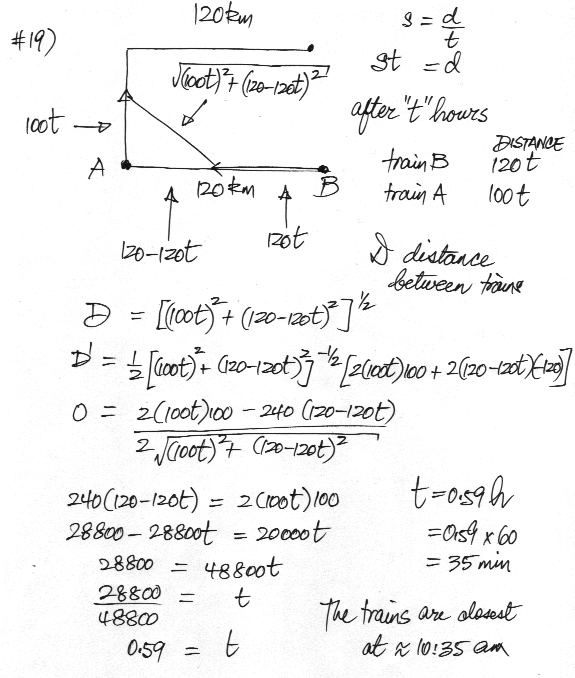 120km
#19)
s = d/t
st = d
√(100t)²+(120-120t)²
after "t" hours
100t
DISTANCE
train B 120t
train A 100t
A 120km B
120-120t
120t
D distance
between trains
D = [(100t)²+(120-120t)²]^1/2
D' = 1/2[(100t)²+(120-120t)²]^-1/2[2(100t)100+2(120-120t)(-120)]
0 = 2(100t)100 - 240 (120-120t)
2√(100t)²+(120-120t)²
240(120-120t) = 2(100t)100
28800 - 28800t = 20000t
28800 = 48800t
28800/48800 = t
0.59 = t
t=0.59 h
=0.59 x 60
= 35 min
The trains are closest
at ≈ 10:35 am